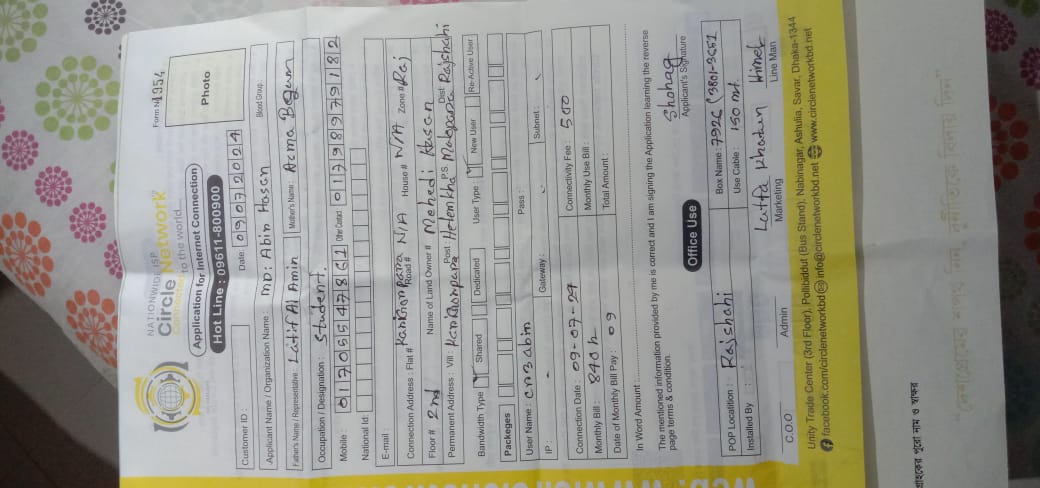 NATIONWIDE ISP
Circle Network
to the world...
Form No 1954
Application for Internet Connection
Hot Line : 09611-800900
Photo
Customer ID :
Date 09072024
Applicant Name / Organization Name : MD: Abin Hasan
Blood Group:
Father's Name / Representative : Latif Al Amin Mother's Name : Asma Begum
Occupation / Designation : Student.
Mobile : Other Contact
National Id:
E-mail :
Connection Address : Flat # Road # N/A House # N/A Zone # Raj
Floor # 2nd Name of Land Owner # Mehedi Hasan
Permanent Address : Vill : Post : Helemkha P.S. Dist: Rajshahi
Bandwidth Type Shared Dedicated User Type : New User Re-Active User
Packeges
User Name : cn3abin Pass :
IP : - Gateway : Subnet :
Connection Date : 09-07-24 Connectivity Fee : 500
Monthly Bill : 840 Monthly Use Bill :
Date of Monthly Bill Pay : 09 Total Amount :
In Word Amount
The mentioned information provided by me is correct and I am signing the Application learning the reverse
page terms & condition.
Shohag
Applicant's Signature
Office Use
POP Location : Rajshahi Box Name :
Installed By : Use Cable : 150 mt.
Latifa Khatun
C.O.O Admin Marketing Line Man
Unity Trade Center (3rd Floor), Pollibiddut (Bus Stand), Nabinagar, Ashulia, Savar, Dhaka-1344
facebook.com/circlenetworkbd info@circlenetworkbd.net www.circlenetworkbd.net
গ্রাহকের পুরো নাম ও স্বাক্ষর